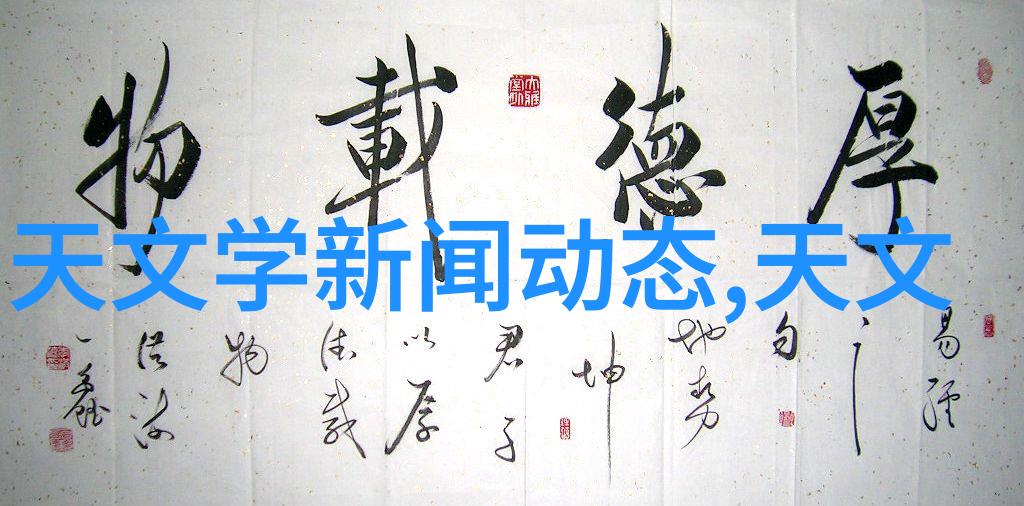 厚德載物
天文学新闻动态,天文
易經之句地势坤君子以厚德载物